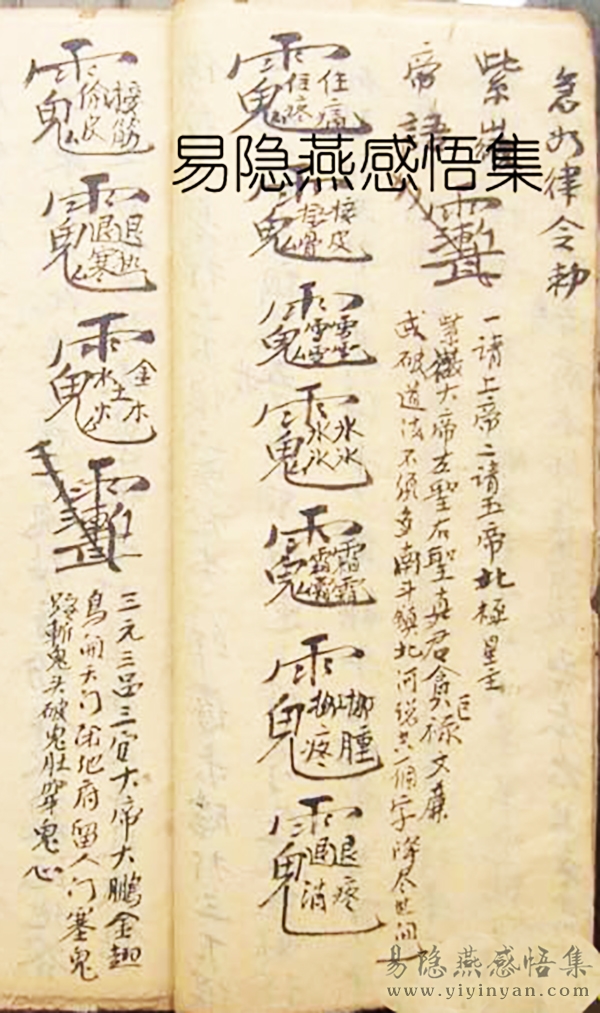 急如律令勅
一请上帝二请五帝北极星主
紫微大帝左聖右聖真君贪巨禄文廉
武破道法不须多南斗鎮北河總共一個字降尽世间
住痛
住疼
接皮
接骨
雪雪
雪雪
氷氷
氷氷
霜霜
霜霜
挪腫
挪疼
退疼
退消
接筋
退热
退寒
金木水火土
三元三品三官大帝大鵬金翅
鳥開天门闭地府留人门塞鬼
路斬鬼头破鬼肚穿鬼心
易隐燕感悟集
易隐燕感悟集
www.yiyinyan.com